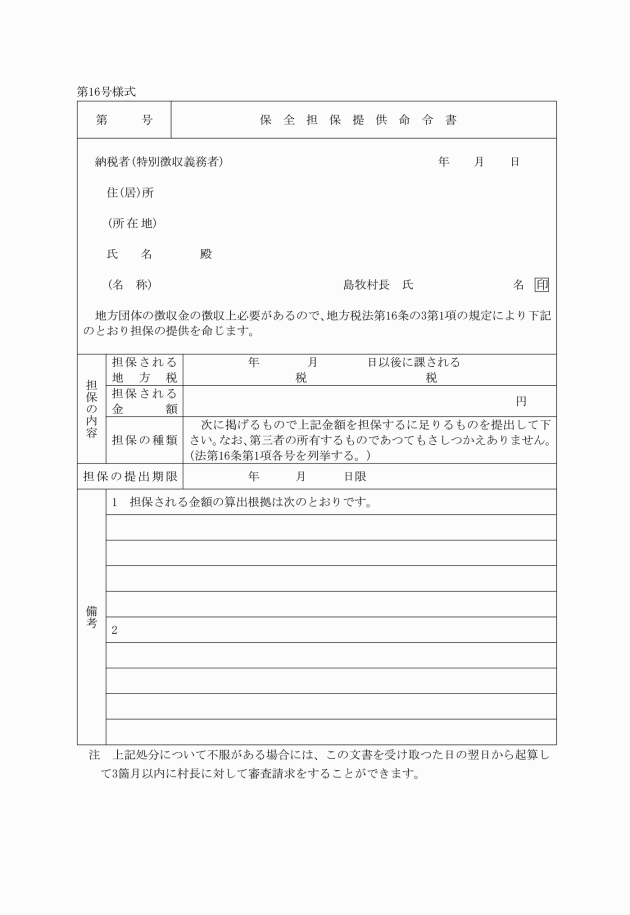 第16号様式
第　　　号　　　保　全　担　保　提　供　命　令　書
納税者(特別徴収義務者)　　　年　　月　　日
住(居)所
(所在地)
氏　　名　　　　殿
(名　称)　　　島牧村長　氏　　　名　印
地方団体の徴収金の徴収上必要があるので、地方税法第16条の3第1項の規定により下記
のとおり担保の提供を命じます。
担保の内容
担保される
地　方　税
年　　　月　　　日以後に課される
税　　　　　　税
担保される
金　　　額
円
担保の種類
次に掲げるもので上記金額を担保するに足りるものを提出して下
さい。なお、第三者の所有するものであつてもさしつかえありません。
(法第16条第1項各号を列挙する。)
担保の提出期限　　　年　　　月　　　日限
備考
1　担保される金額の算出根拠は次のとおりです。
2
注　上記処分について不服がある場合には、この文書を受け取つた日の翌日から起算し
て3箇月以内に村長に対して審査請求をすることができます。